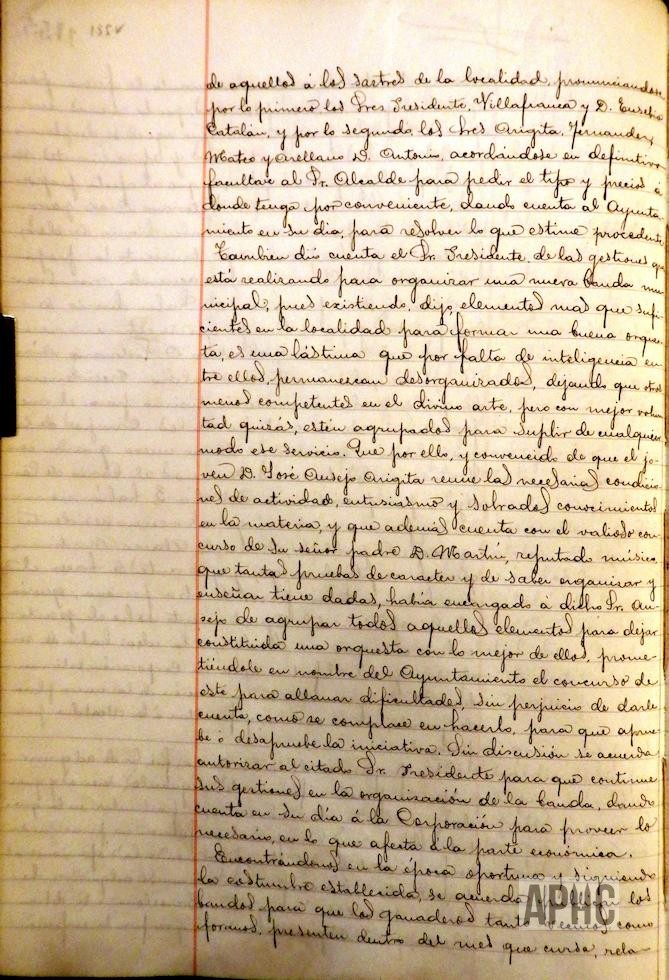 de aquellos á los sastres de la localidad, pronunciandose
por lo primero los Sres Presidente, Villafranca y D. Eusebio
Catalán, y por lo segundo, los Sres Arigita, Fernandez,
Mateo y Arellano D. Antonio, acordándose en definitiva
facultar al Sr. Alcalde para pedir el tipo y precios á
donde tenga por conveniente, dando cuenta al Ayunta
miento en su dia, para resolver lo que estime procedente
Tambien dió cuenta el Sr. Presidente, de las gestiones que
está realizando para organizar una nueva banda mu
nicipal, pues existiendo, dijo, elementos mas que sufi-
cientes en la localidad para formar una buena orques
ta, es una lástima que por falta de inteligencia en-
tre ellos, permanezcan desorganizados, dejando que otros
menos competentes en el divino arte, pero con mejor volun
tad quizás, estén agrupados para suplir de cualquier
modo ese servicio. Que por ello, y convencido de que el jo-
ven D. José Ausejo Arigita reune las necesarias condicio-
nes de actividad, entusiasmo y sobrados conocimientos
en la materia, y que además cuenta con el valioso con-
curso de su señor padre D. Martín, reputado músico,
que tantas pruebas de caracter y de saber organizar y
enseñar tiene dadas, había encargado á dicho Sr. Au-
sejo de agrupar todos aquellos elementos para dejar
constituida una orquesta con lo mejor de ellos, prome-
tiéndole en nombre del Ayuntamiento el concurso de
este para allanar dificultades, sin perjuicio de darle
cuenta, como se complace en hacerlo, para que aprue-
be ó desapruebe la iniciativa. Sin discusión se acuerda
autorizar al citado Sr. Presidente para que continue
sus gestiones en la organización de la banda, dando
cuenta en su día á la Corporación para proveer lo
necesario, en lo que afecta á la parte económica.
Encontrándonos en la época oportuna y siguiendo
la costumbre establecida, se acuerda publicar los
bandos para que los ganaderos tanto vecinos como
foranos, presenten dentro del mes que cursa, rela-
APHC